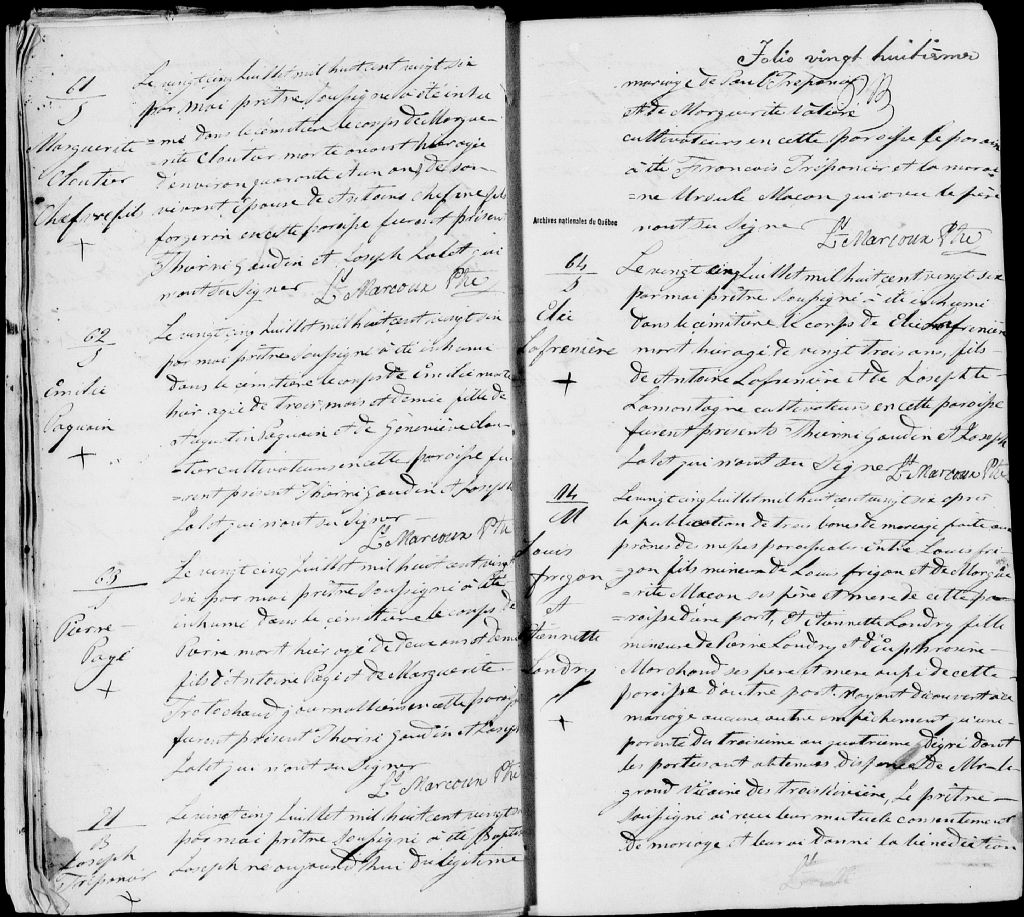 61
S
Marguerite
Cloutier
Chefvrefils
+
Le vingt cinq Juillet mil huit cent vingt six
par moi prêtre soussigné a été inhu
=mé dans le cémetiere le corps de Margue-
rite Cloutier morte avant hier agée
d'environ quarante et un ans, de son
vivant Epouse de Antoine Chefvrefils
forgeron en cette paroisse furent présent
Thorri Gaudin et Joseph Lalet qui
n'ont su signer
Ls Marcoux Ptre
62
S
Emilie
Paquin
+
Le vingt cinq Juillet mil huit cent vingt six
par moi prêtre soussigné a été inhumé
dans le cemetiere le corps de Emilie morte
hier agée de trois mois et demie fille de
Augustin Paquin et de Genevieve Clou-
tier cultivateurs en cette paroisse fu-
=rent présent Thorri Gaudin et Joseph
Lalet qui n'ont su signer
Ls Marcoux Ptre
63
S
Pierre
Pagé
+
Le vingt cinq Juillet mil huit cent vingt
six par moi prêtre soussigné a été
inhumé dans le cemetiere le corps de
Pierre mort hier agé de deux ans et demie
fils d'Antoine Pagé et de Marguerite
Trotochaud journalliers en cette paroisse
furent présent Thorri Gaudin et Joseph
Lalet qui n'ont su signer
Ls Marcoux Ptre
71
B
Joseph
Treponier
+
Le vingt cinq Juillet mil huit cent vingt six
par moi prêtre soussigné a été Baptisé
Joseph né aujourd'hui du légitime
Folio vingt huitième
mariage de Paul Treponier
et de Marguerite
cultivateurs en cette paroisse le parain
a été Francois Treponier et la marai
=ne Ursule Macon qui avec le père
n'ont su signer
Ls Marcoux Ptre
Archives nationales du Québec
64
S
Elie
Lafrenière
+
Le vingt cinq Juillet mil huit cent vingt six
par moi prêtre soussigné a été inhumé
dans le cémetiere le corps de Elie Lafrenière
mort hier agé de vingt trois ans, fils
de Antoine Lafrenière et de Josephte
Lamontagne cultivateurs en cette paroisse
furent presents Thorri Gaudin et Joseph
Lalet qui n'ont su signer
Ls Marcoux Ptre
14
M
Louis
frigon
et
Etiennette
Landry
+
Le vingt cinq Juillet mil huit cent vingt six après
la publication de trois bans de mariage faite aux
prônes des messes paroissiales entre Louis fri-
gon fils mineur de Louis frigon et de Margue
=rite Macon ses père et mere de cette pa-
=roisse d'une part, et Etiennette Landry fille
mineure de Pierre Landry et d'Euphrosine
Marchand ses pere et mere aussi de cette
paroisse d'autre part. N'ayant découvert au
mariage aucune autre empêchement qu'une
parenté du troisieme au quatrieme dégré dont
les parties ont obtenus dispense de Mr le
grand Vicaire des trois rivière, Le prêtre
soussigné ai reçu leur mutuele consentement
de mariage et leur ai donné la bénédiction